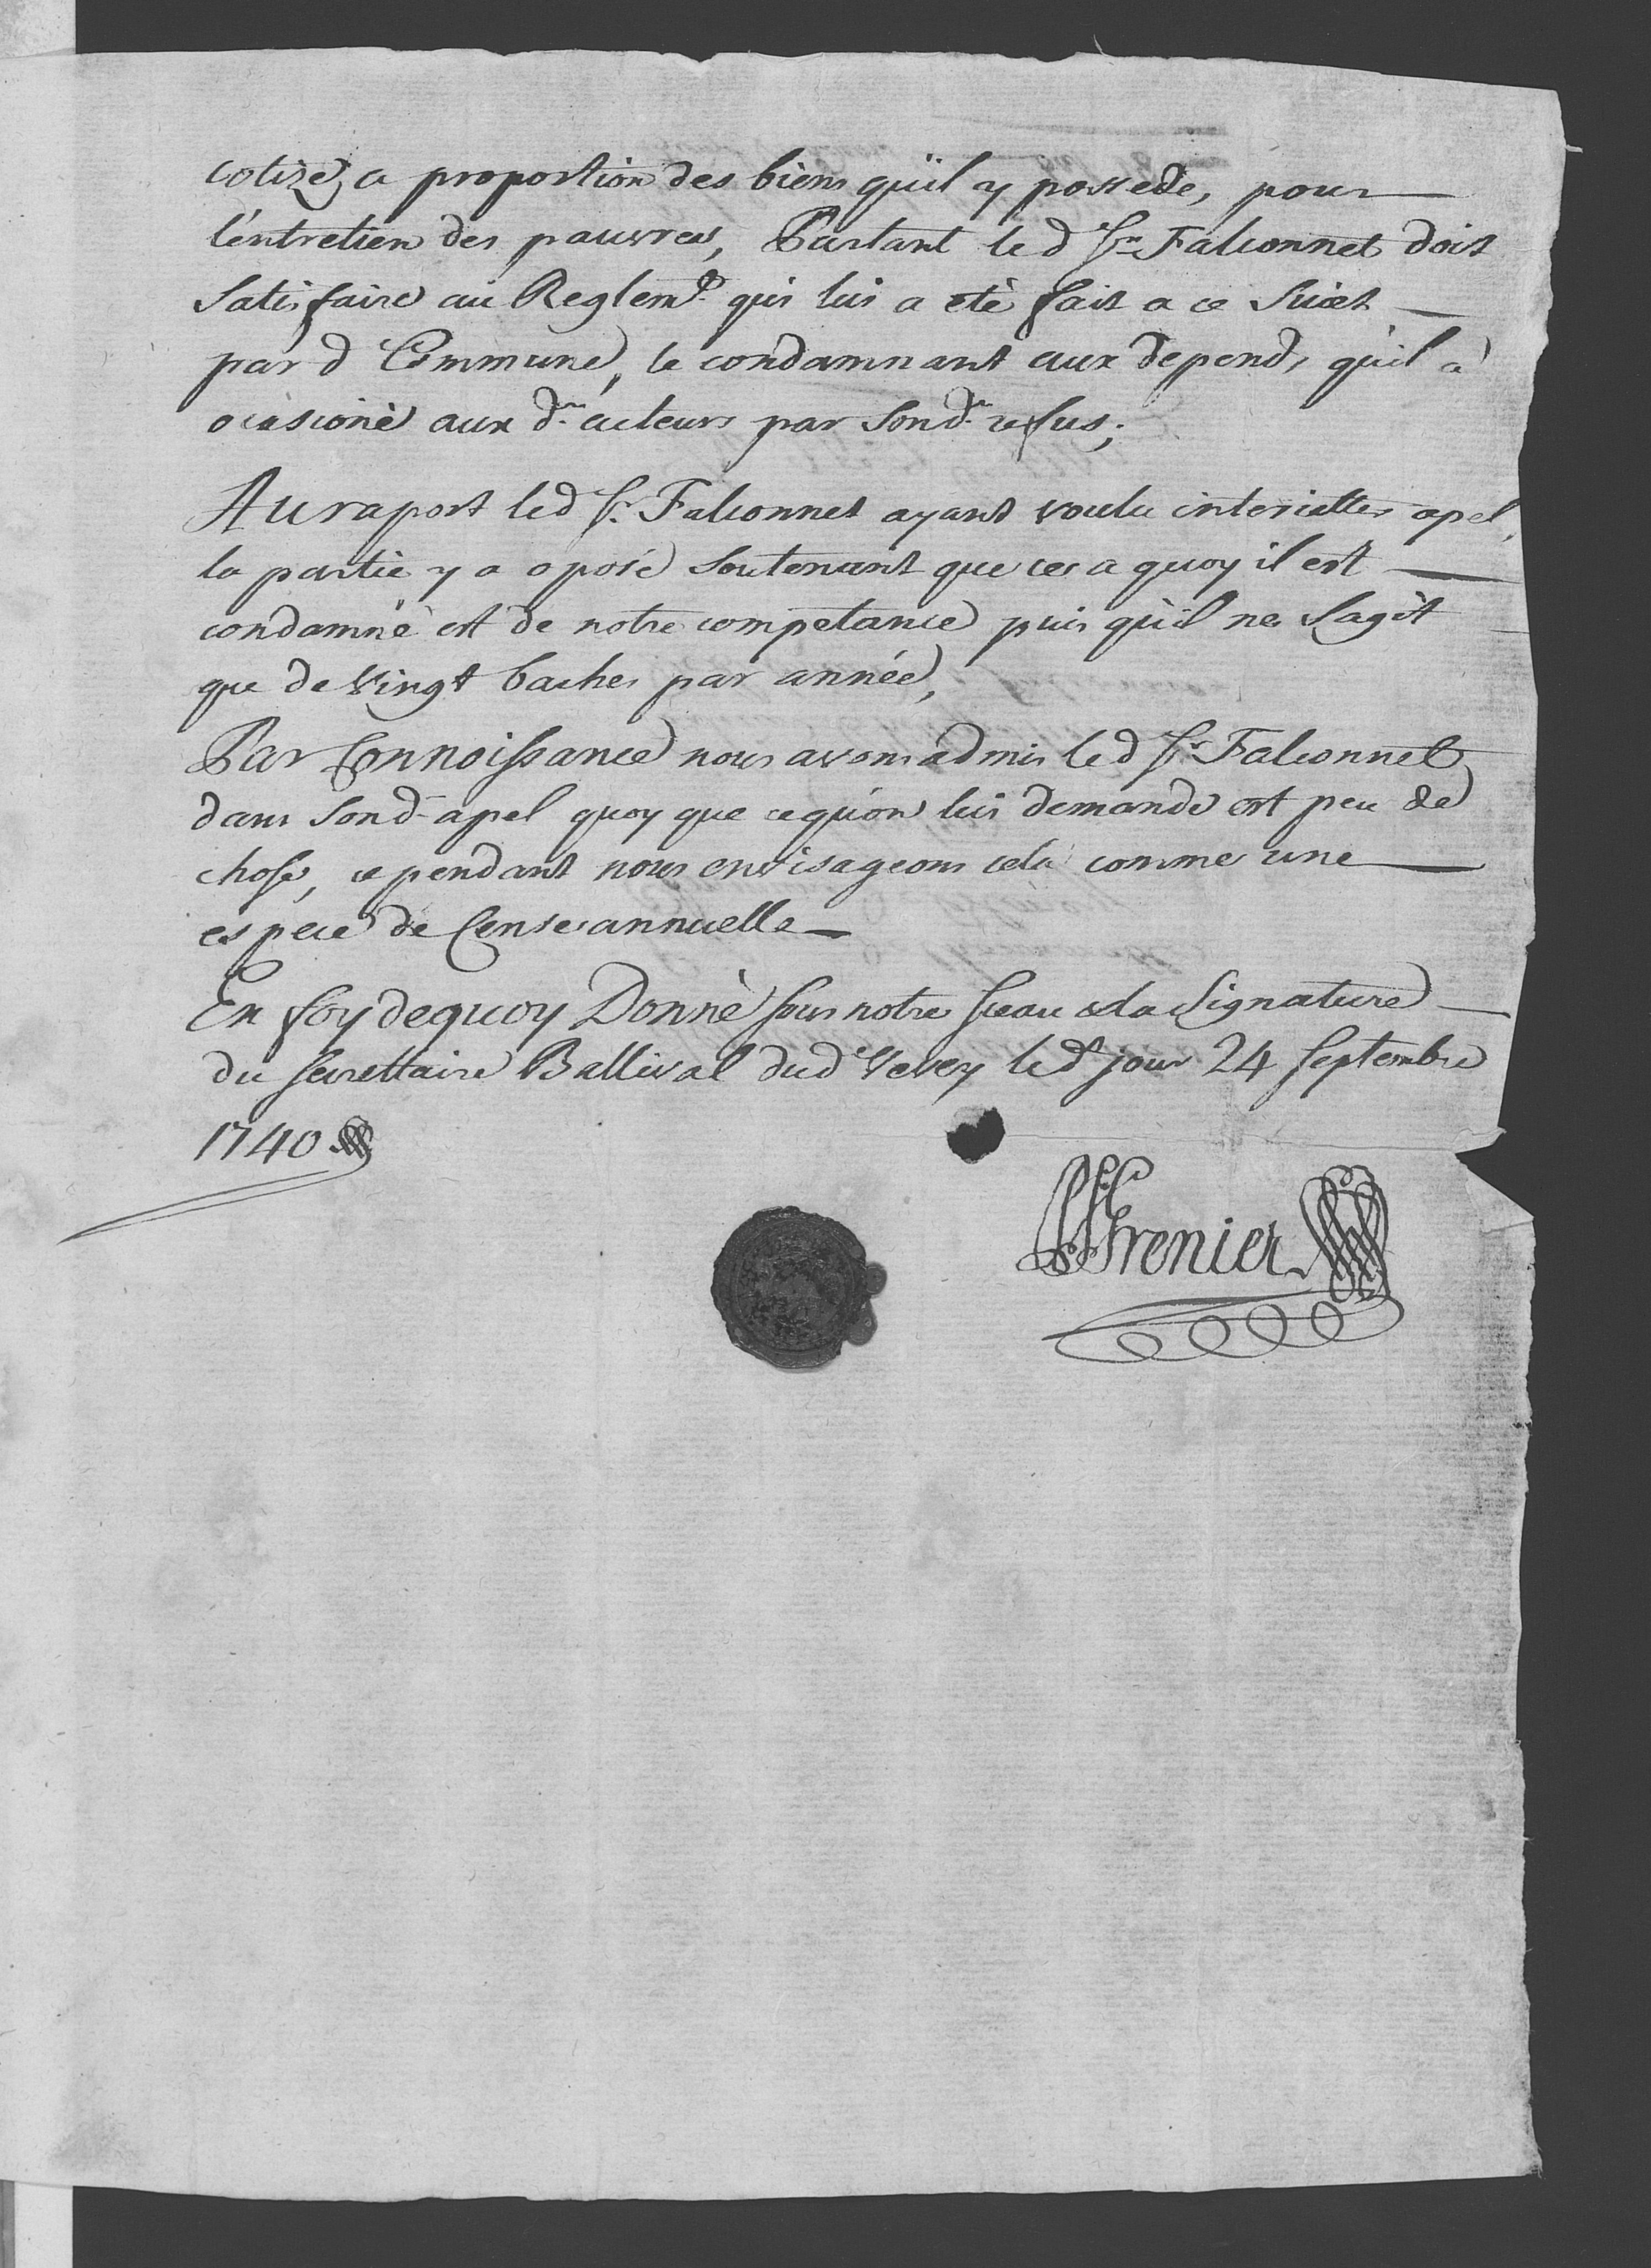 cotizé a proportion des biens qu'il y possede, pour
l'entretien des pauvres, Partant le d.t S.r Falconnet doit
Satisfaire au Reglem.t qui lui a eté fait a ce Suiet
par d.e Commune, le condamnant aux depends qu'il à
ocasioné aux d.ts acteurs par Son d.t refus;
Au raport led S.r Falconnet ayant voulu interietter apel,
la partie y a oposé Soutenant que ce a quoy il est
condamné est de notre competance puis qu'il ne S'agit
que de Vingt baches par année,
Par Connoissance nous avons admis led S.r Falconnet
dans Sond. apel quoy que ce qu'on lui demande est peu de
chose, ce pendant nous envisageons cela comme une
espece de Cense annuelle
En foy de quoy Donné sous notre sceau & la Signature
du secrettaire Ballival dud.t Vevey led.t jour 24 septembre
1740
Grenier